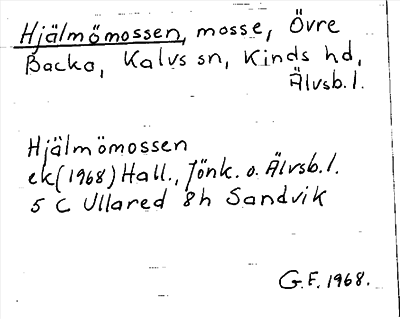 Hjälmömossen, mosse, Övre
Backa, Kalvs sn, Kinds hd,
Älvsb. l.
Hjälmömossen
ek (1968) Hall., Jönk. o. Älvsb. l.
5 C Ullared 8h Sandvik
G.F. 1968.